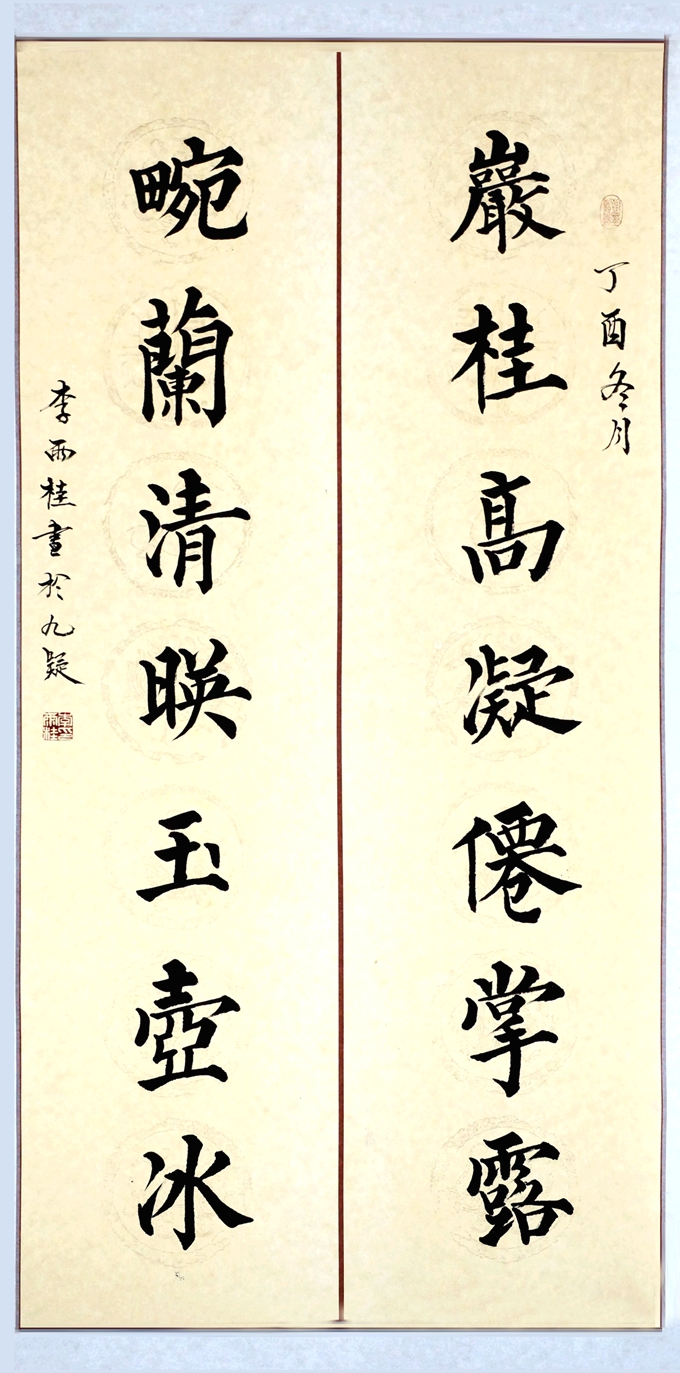 丁酉冬月
巖桂高凝僊掌露
畹蘭清暎玉壺冰
李雨桂書於九疑